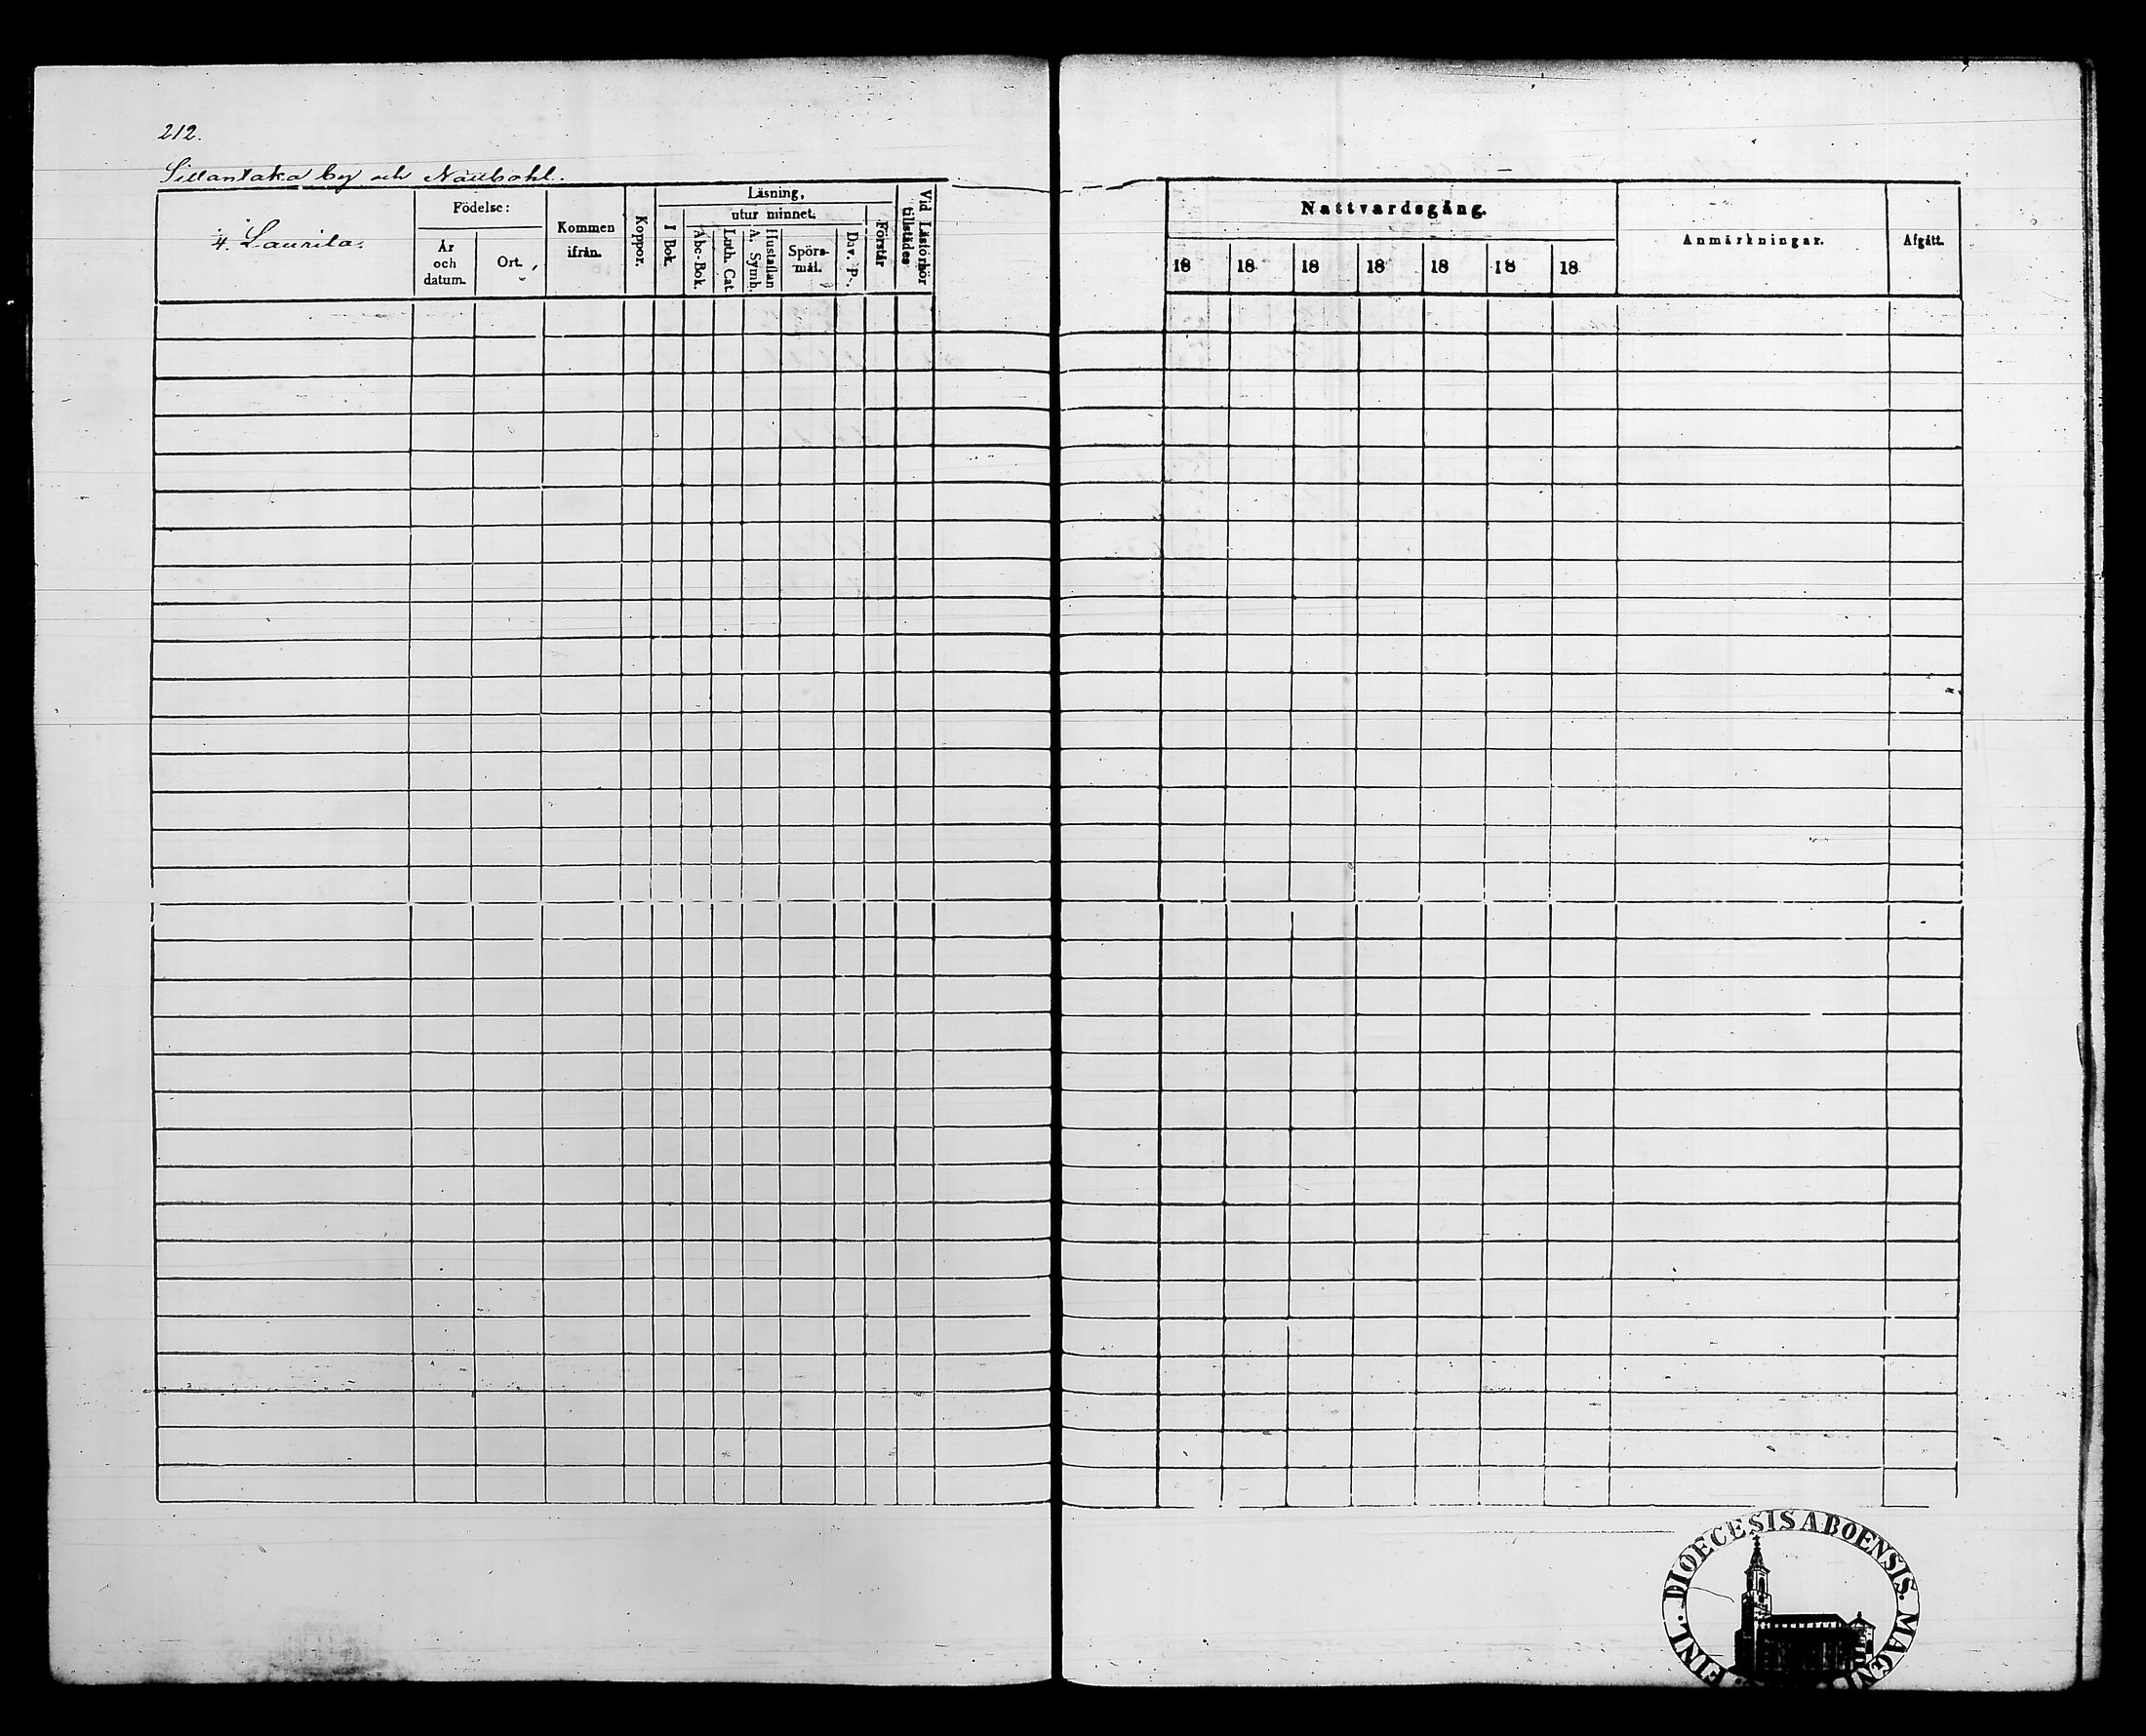 212.
Sillantaka by och Näsebohl.
4. Laurila.
Födelse:
År och datum.
Ort.
Kommen ifrån.
Koppor.
Läsning,
utur minnet.
I Bok.
Abc-Bok.
Luth. Cat.
A. Symb.
Hustaflan
Spörs-mål.
Dav. Ps.
Förstår
Vid Läsförhör tillstädes
Nattvardsgång.
18 18 18 18 18 18 18
Anmärkningar.
Afgått.
FINL. DIOECESIS ABOENSIS. MAGNI